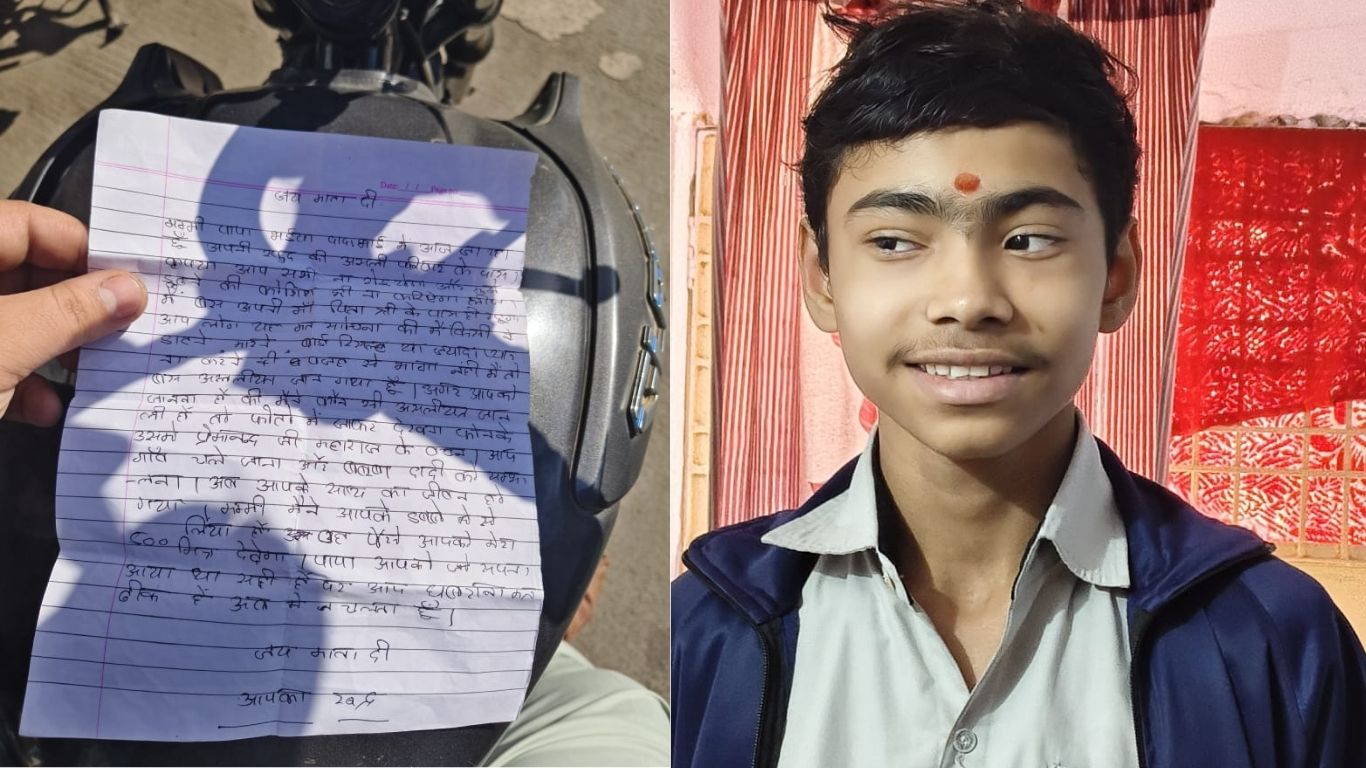 Date / / Page
जय माता दी
मम्मी पापा भईया दादाभाई मे आज जा रहा
हूँ अपनी खुद की असली परिवार के पास।
कृपया आप सभी ना रोइयेगा और मुझे
की कोशिश भी ना करियेगा
मे बस अपनी माँ पिता श्री के पास ही
आप लोग यह मत सोचना की में किसी के
डाटने मारने या ज्यादा प्यार
ना करने की वजह से भागा नहीं मैं तो
बस असलीयत जान गया हूँ। अगर आपको
जानना हो की मैंने कौन सी असलीयत जान
ली है तो फोटो में जाकर देखना फोनके
उसमे प्रेमानन्द जी महाराज के वचन। आप
गाँव चले जाना और दादी को सम्भा
-लना। अब आपके साथ का जीवन हो
गया। मम्मी मैंने आपके डब्बे मे से
लिया हूँ वह पैसे आपको मेरा
८०० मित्र देदेगा। पापा आपको जो सपना
आया था सही है पर आप घबराना मत
ठीक हैं अब मे चलता हूँ।
जय माता दी
आपका